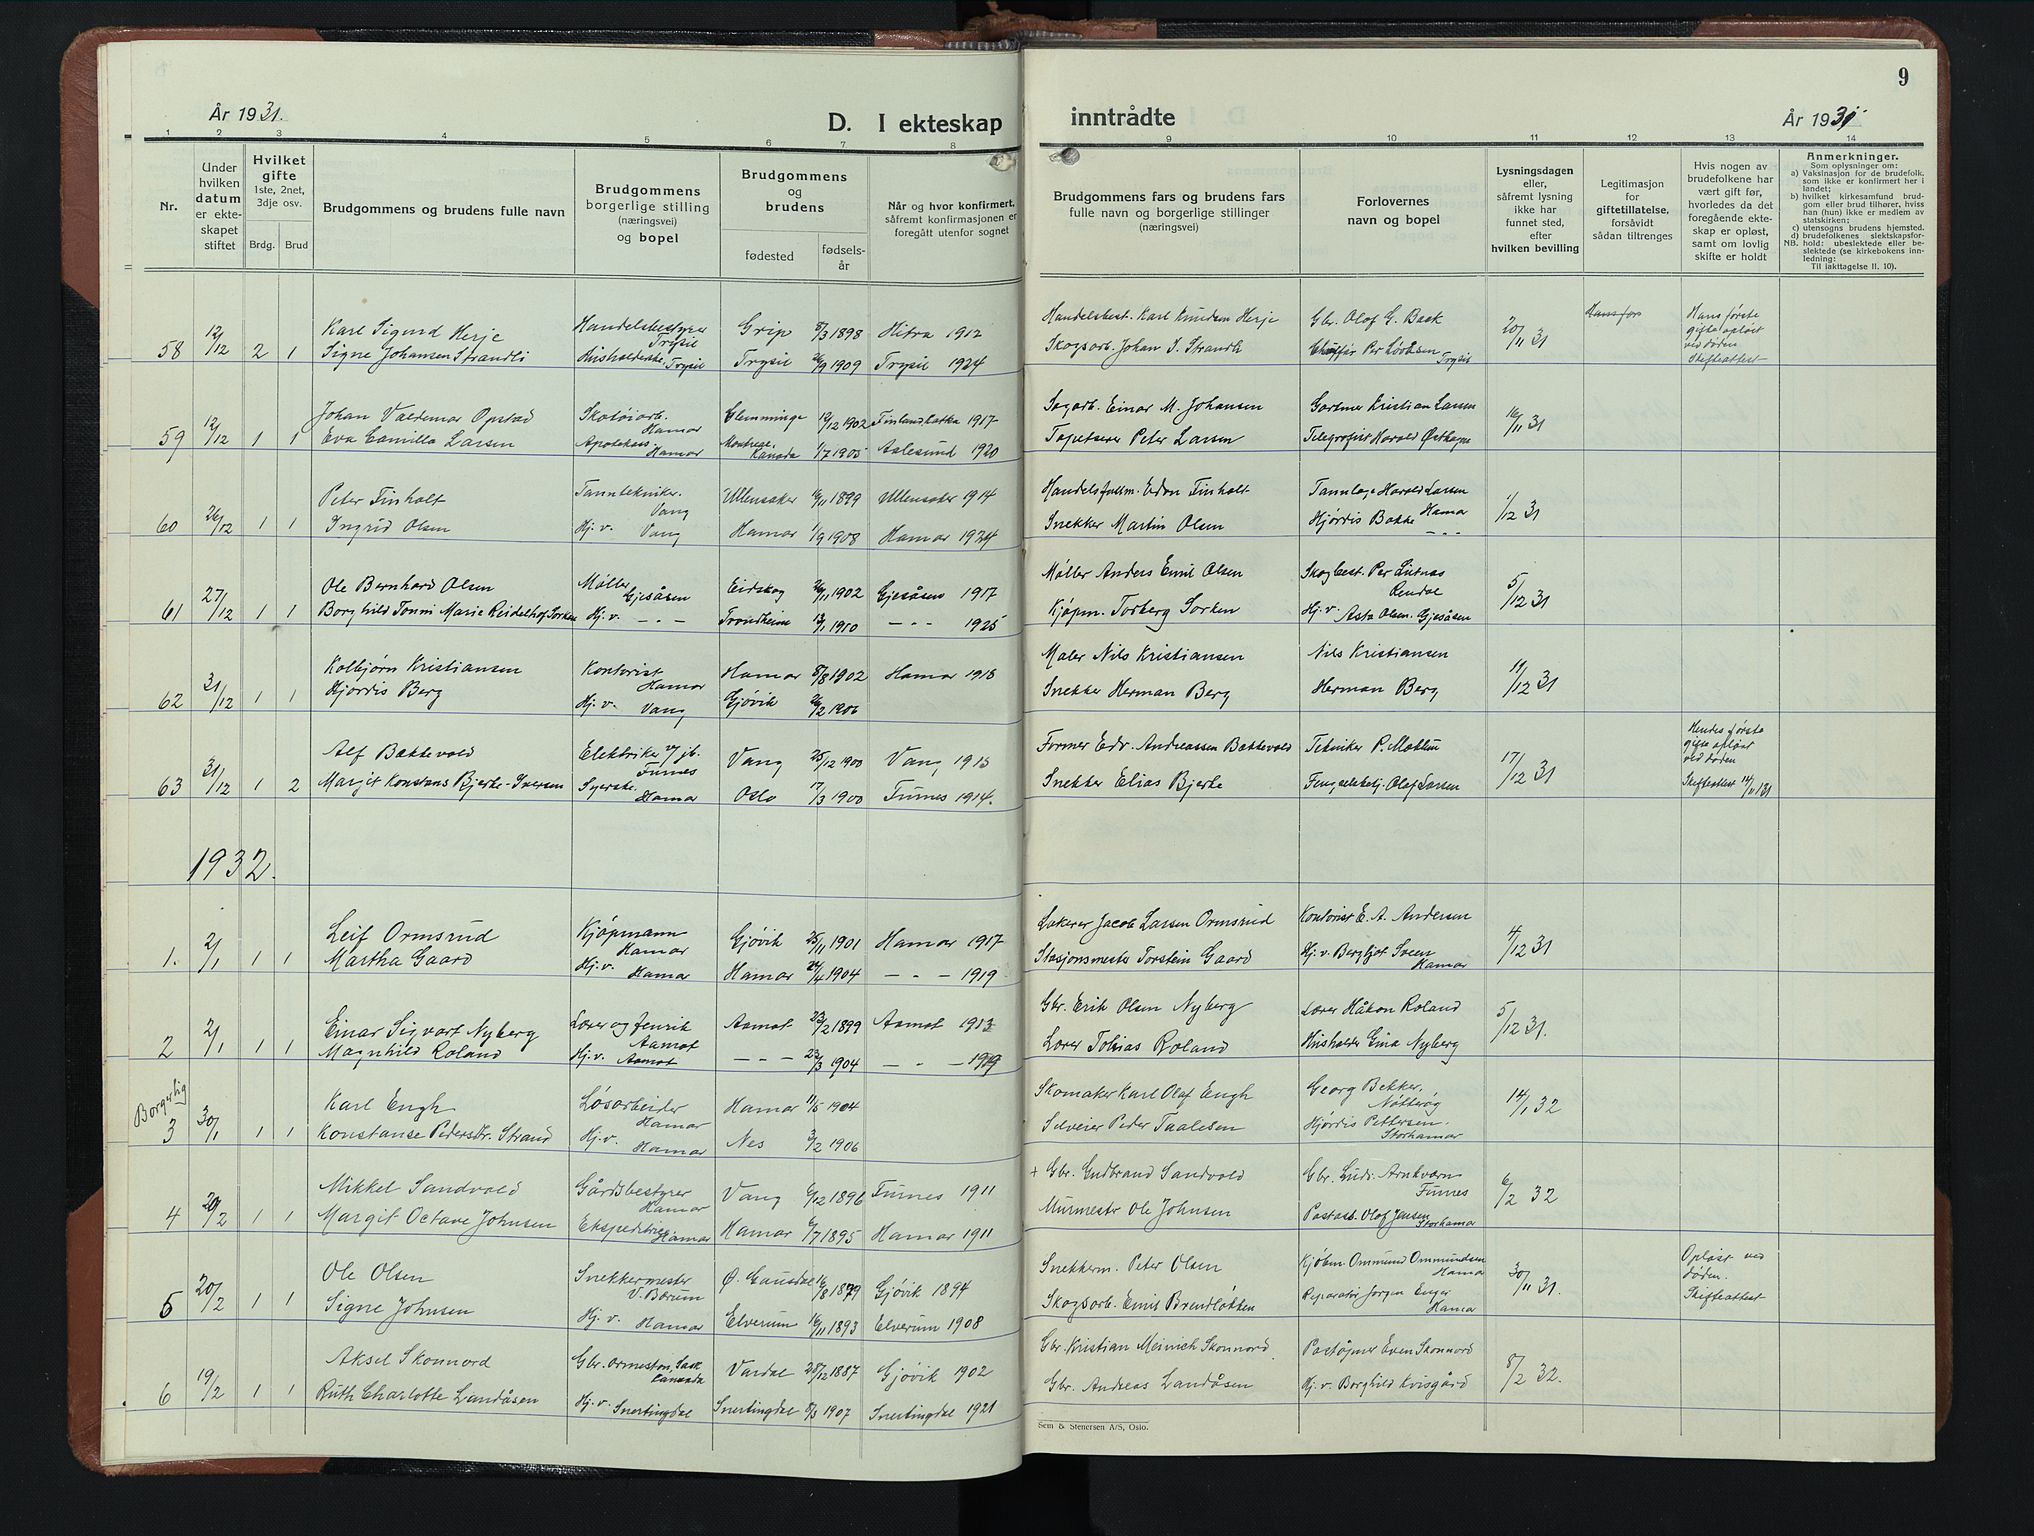 9
År 1931.
D. I ekteskap
inntrådte
År 1931
1 2 3 4 5 6 7 8 9 10 11 12 13 14
Nr.
Under
hvilken
datum
er ekte-
skapet
stiftet
Hvilket
gifte
1ste, 2net,
3dje osv.
Brdg.
Brud
Brudgommens og brudens fulle navn
Brudgommens
borgerlige stilling
(næringsvei)
og bopel
Brudgommens
og
brudens
fødested
fødsels-
år
Når og hvor konfirmert,
såfremt konfirmasjonen er
foregått utenfor sognet
Brudgommens fars og brudens fars
fulle navn og borgerlige stillinger
(næringsvei)
Forlovernes
navn og bopel
Lysningsdagen
eller,
såfremt lysning
ikke har
funnet sted,
efter
hvilken bevilling
Legitimasjon
for
giftetillatelse,
forsåvidt
sådan tiltrenges
Hvis nogen av
brudefolkene har
vært gift før,
hvorledes da det
foregående ekte-
skap er opløst,
samt om lovlig
skifte er holdt
Anmerkninger.
Som oplysninger om:
a) Vaksinasjon for de brudefolk,
som ikke er konfirmert her i
landet;
b) hvilket kirkesamfund brud-
gom eller brud tilhører, hviss
han (hun) ikke er medlem av
statskirken;
c) utensogns brudens hjemsted.
d) brudefolkenes slektskapsfor-
NB. hold: ubeslektede eller be-
slektede (se kirkebokens inn-
ledning:
Til iakttagelse II. 10).
58 12/12 2 1
Karl Sigurd Herje
Signe Johansen Strandli
Handelsbestyrer
Trysil
Husholderske Trysil
Grip 8/3 1898 Hitra 1912
Trysil 26/9 1909 Trysil 1924
Handelsbest. Karl Knudsen Herje
Skogsarb. Johan S. Strandli
Gbr. Olof G. Bakk
Chauffør Per Løvåsen
Trysil
20/11 31
Hans før
Hans første
gifte opløst
ved døden
Skifteattest
59 12/12 1 1
Johan Valdemar Opstad
Eva Camilla Larsen
Skotøiarb.
Hamar
Apotekass.
Hamar
Glemminge 19/12 1902 Finlandsatka 1917
Kanada 1/7 1905 Aalesund 1920
Sagarb. Einar M. Johansen
Tapetserer Peter Larsen
Gartner Kristian Larsen
Telegrafist Harald Østhagen
16/11 31
60 26/12 1 1
Peter Finholt
Ingrid Olsen
Tanntekniker.
Vang
Hj. v. Vang
Ullensaker 16/11 1899 Ullensaker 1914
Hamar 1/9 1908 Hamar 1924
Handelsfullm. Edon Finholt
Snekker Martin Olsen
Tannlege Harald Larsen
Hamar
Hjørdis Bakke - „ -
1/12 31
61 27/12 1 1
Ole Bernhard Olsen
Borghild Tonni Marie Reidelhof Sorken
Møller
Gjesåsen
Hj. v. - „ -
Eidskog 26/11 1902 Gjesåsen 1917
Trondheim 13/1 1910 - „ - 1925
Møller Anders Emil Olsen
Kjøpm. Torberg Sorken
Skogbest. Per Lutnæs
Rendal
Hj. v. Asta Olsen. Gjesåsen
5/12 31
62 31/12 1 1
Kolbjørn Kristiansen
Hjørdis Berg
Kontorist
Hamar
Hj. v. Vang
Hamar 8/8 1902 Hamar 1918
Gjøvik 26/2 1906
Maler Nils Kristiansen
Snekker Herman Berg
Nils Kristiansen
Herman Berg
11/12 31
63 31/12 1 2
Alf Bækkevold
Margit Konstans Bjerke-Iversen
Elektriker v/ jb.
Furnes
Syerske.
Hamar
Vang 25/12 1900 Vang 1915
Oslo 17/3 1900 Furnes 1914.
Former Edv. Andreassen Bækkevold
Snekker Elias Bjerke
Tekniker P. Moklin
Fengselsbetj. Olaf Larsen
17/12 31
Hendes første
gifte opløst
ved døden
Skifteattest 14/11 131
1932.
1. 2/1 1 1
Leif Ormsrud
Martha Gaard
Kjøpmann
Hamar
Hj. v. Hamar
Gjøvik 25/11 1901 Hamar 1917
Hamar 24/4 1904 - „ - 1919
Lakerer Jacob Larsen Ormsrud
Stasjonsmester Torstein Gaard
Kontorist E. A. Andersen
Hj. v. Bergljot Sveen
Hamar
4/12 31
2 2/1 1 1
Einar Sigvart Nyberg
Magnhild Roland
Lærer og fenrik
Aamot
Hj. v. Aamot
Aamot 23/2 1899 Aamot 1913
- „ - 23/3 1904 - „ - 1919
Gbr. Erik Olsen Nyberg
Lærer Tobias Roland
Lærer Håkon Roland
Husholder Gina Nyberg
5/12 31.
Borgerlig
3 30/1 1 1
Karl Engh
Konstanse Pedersdtr. Strand
Løsarbeider
Hamar
Hj. v. Hamar
Hamar 11/5 1904
Nes 3/2 1906
Skomaker Karl Olaf Engh
Selveier Peder Taalesen
Georg Bekker.
Nøtterøy
Hjørdis Pettersen.
Storhamar
14/1 32
4 20/2 1 1
Mikkel Sandvold
Margit Octave Johnsen
Gårdsbestyrer
Hamar
Ekspeditrise
Hamar
Vang 6/12 1896 Furnes 1911
Hamar 6/7 1895 Hamar 1911
+ Gbr. Gudbrand Sandvold
Murmestr Ole Johnsen
Gbr. Ludv. Arnkværn
Furnes
Postass. Olaf Jensen
Storhamar
6/2 32
5 20/2 1 1
Ole Olsen
Signe Johnsen
Snekkermester
V. Bærum
Hj. v. Hamar
Ø. Gausdal 16/8 1879 Gjøvik 1894
Elverum 16/11 1893 Elverum 1908
Snekkerm. Peter Olsen
Skogsarb. Emil Brendløkken
Kjøbm. Ommund Ommundsen
Hamar
Reparatør Jørgen Enger
Hamar
30/11 31.
Opløst ved
døden.
Skifteattest
6 19/2 1 1
Aksel Skonnord
Ruth Charlotte Landåsen
Gbr. Ormeston, Sask
Cananda
Hj. v. Snertingdal
Vardal 28/12 1887 Gjøvik 1902
Snertingdal 8/3 1907 Snertingdal 1921
Gbr. Kristian Meinich Skonnord
Gbr. Andreas Landåsen
Poståpner Even Skonnord
Hj. v. Borghild Kvisgård
8/2 32.
Sem & Stenersen A/S, Oslo.